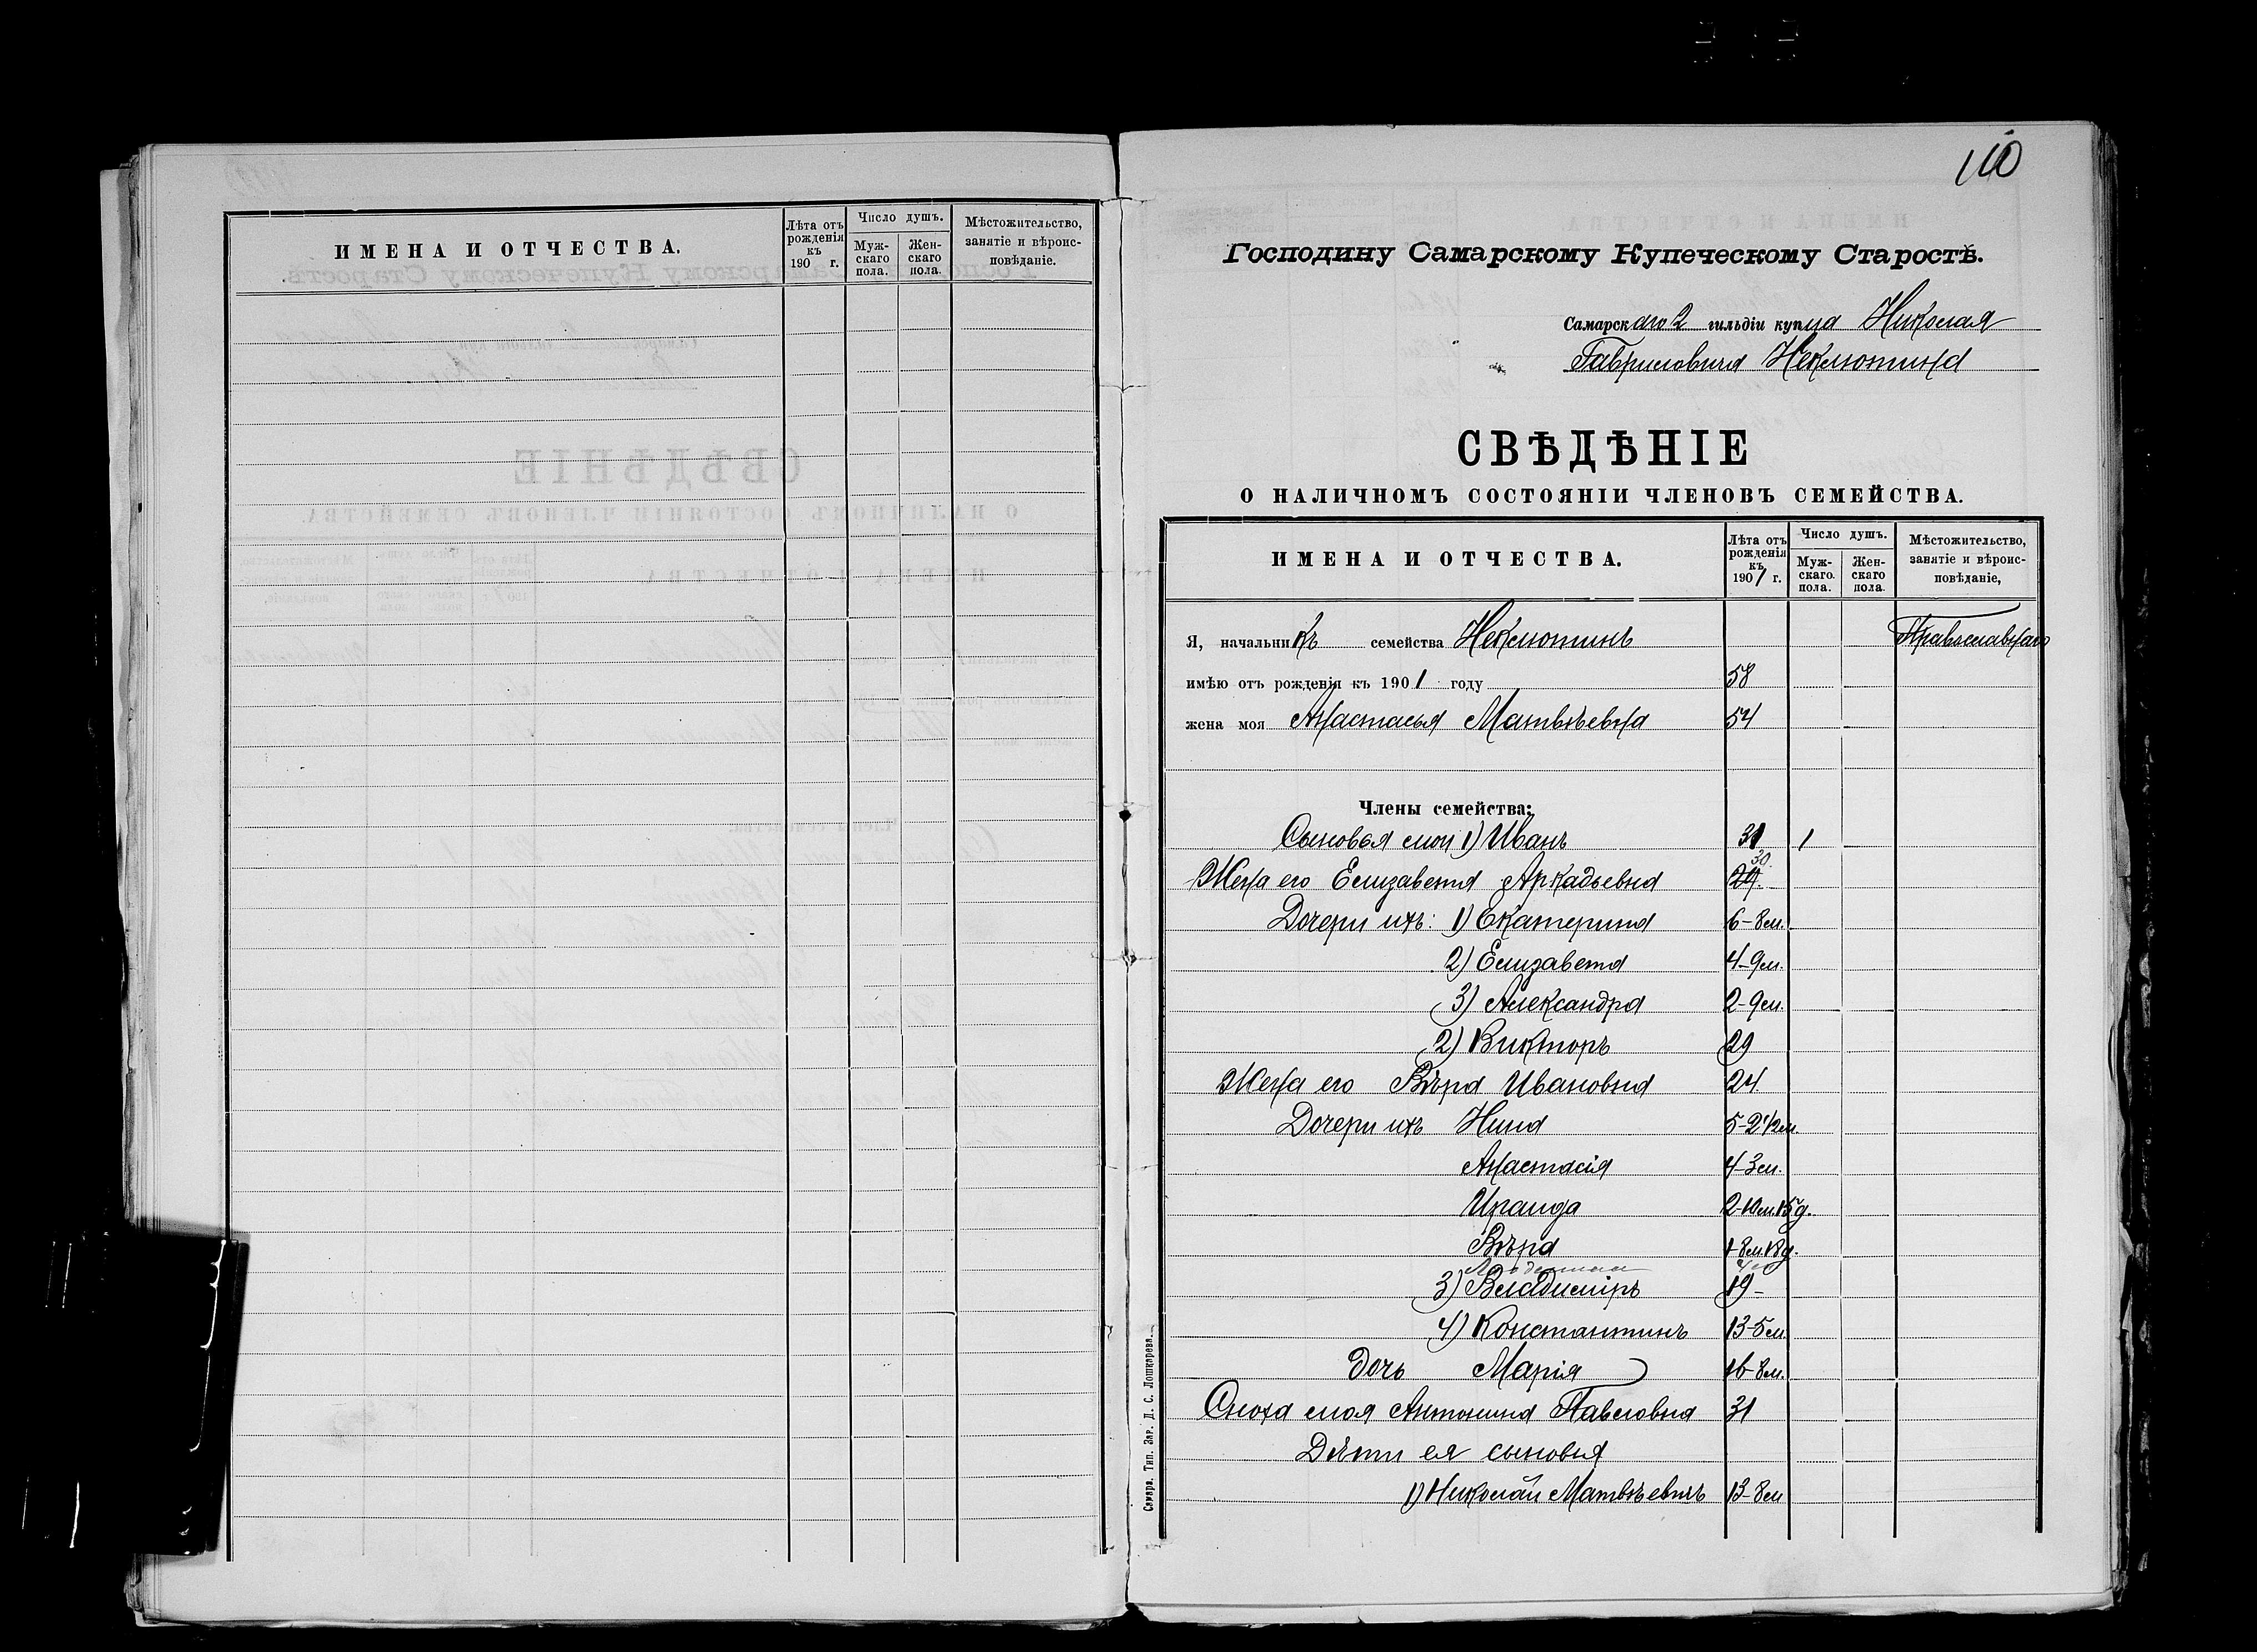 ИМЕНА И ОТЧЕСТВА.
Лѣта отъ рожденія къ 190 г.
Число душъ.
Муж-скаго пола.
Жен-скаго пола.
Мѣстожительство, занятіе и вѣроис-повѣданіе.
110
Господину Самарскому Купеческому Старостѣ.
Самарскаго 2 гильдіи купца Николая
Гавриловича Неклютина
СВѢДѢНІЕ
О НАЛИЧНОМЪ СОСТОЯНІИ ЧЛЕНОВЪ СЕМЕЙСТВА.
ИМЕНА И ОТЧЕСТВА.
Лѣта отъ рожденія къ 1901 г.
Число душъ.
Муж-скаго. пола.
Жен-скаго пола.
Мѣстожительство, занятіе и вѣроис-повѣданіе,
Я, начальникъ семейства Неклютинъ Православнаго
имѣю отъ рожденія къ 1901 году 58
жена моя Анастасья Матвѣевна 54
Члены семейства:
Сыновья мои 1) Иванъ 31 1
Жена его Елизавета Аркадьевна 29. 30.
Дочери ихъ: 1) Екатерина 6-8м.
2) Елизавета 4-9м.
3) Александра 2-9м.
2) Викторъ 29
Жена его Вѣра Ивановна 24
Дочери ихъ Нина 5-2 1/2м.
Анастасія 4-3м.
Ираида 2-10м.15д.
Вѣра 1-8м.18д.
3) Владиміръ 19-
4) Константинъ 13-5м.
дочь Марія 16-8м.
Сноха моя Антонина Павловна 31
Дѣти ея сыновья
1) Николай Матвѣевичъ 13-8м
Самара. Тип. Зар. Д. С. Лошкарева.